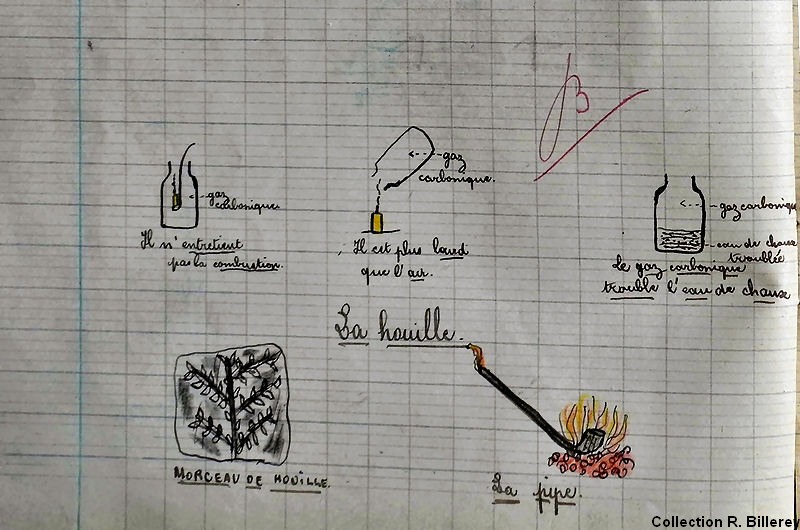 B
gaz
carbonique.
Il n'entretient
pas la combustion.
gaz
carbonique.
Il est plus lourd
que l'air.
gaz carbonique
eau de chaux
troublée
Le gaz carbonique
trouble l'eau de chaux
La houille.
MORCEAU DE HOUILLE.
La pipe.
Collection R. Billerey